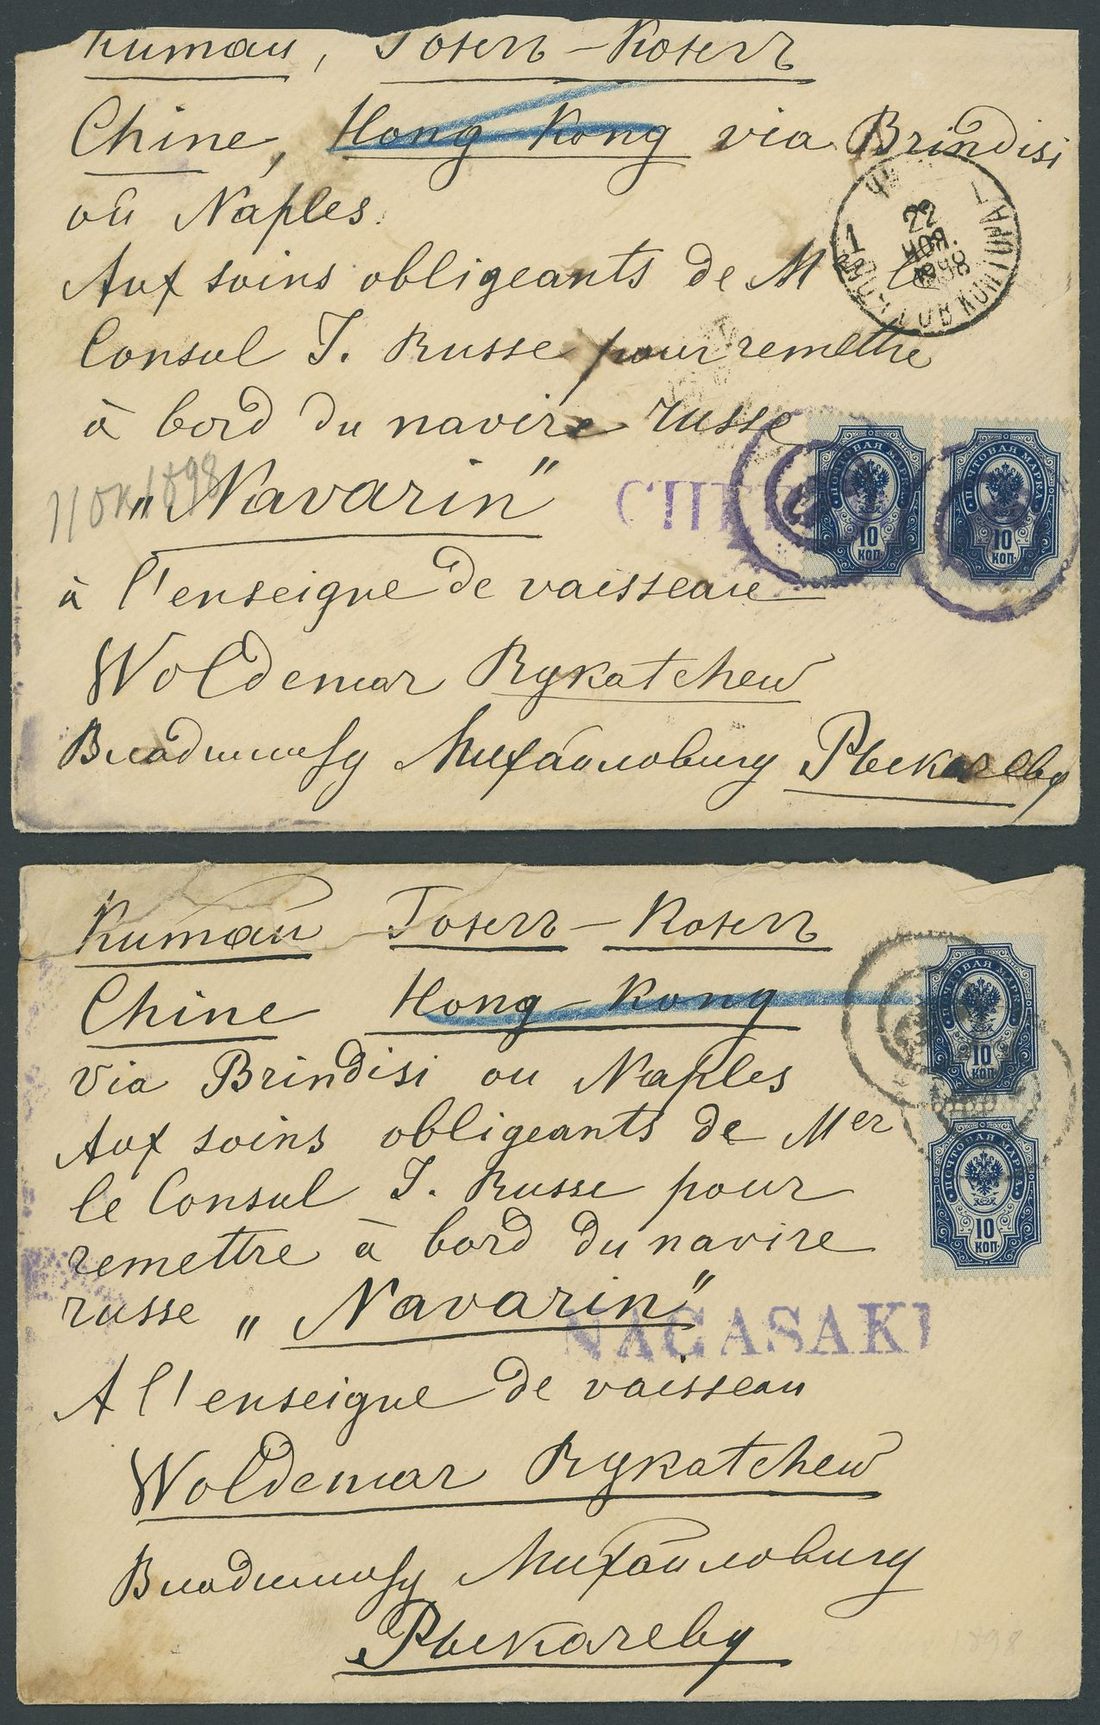 Китай, Гонгъ-Конгъ
Chine, Hong-Kong via Brindisi
ou Naples.
Aux soins obligeants de Mr le
Consul I. Russe pour remettre
à bord du navire russe
„Navarin”
à l'enseigne de vaisseau
Woldemar Rykatchew
Владиміру Михайловичу Рыкачеву
22
НОЯ.
1898
1
ПОЧТОВАЯ МАРКА
10
КОП.
ПОЧТОВАЯ МАРКА
10
КОП.
Китай Гонгъ-Конгъ
Chine Hong-Kong
via Brindisi ou Naples
Aux soins obligeants de Mer
le Consul I. Russe pour
remettre à bord du navire
russe „Navarin”
A l'enseigne de vaisseau
Woldemar Rykatchew
Владиміру Михайловичу
Рыкачеву
ПОЧТОВАЯ МАРКА
10
КОП.
ПОЧТОВАЯ МАРКА
10
КОП.
NAGASAKI